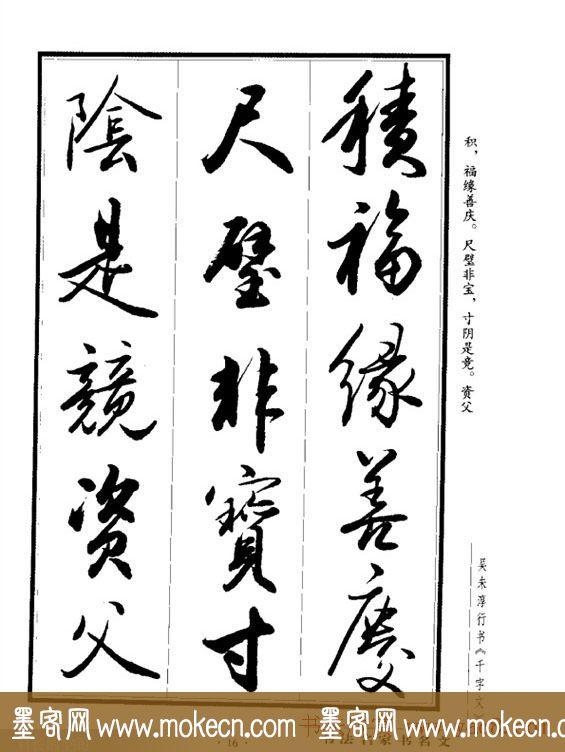 積福缘善慶
尺璧非寳寸
陰是競資父
积，福缘善庆。尺璧非宝，寸阴是竞。资父
吴未淳行书《千字文
墨客网www.mokecn.com 墨客网www.mokecn.com
· 16 ·